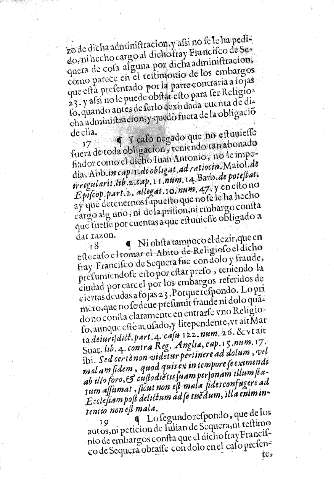 zo de dicha administracion, y assi no se le ha pedi-
do, ni hecho cargo al dicho fray Francisco de Se-
quera de cosa alguna por dicha administracion;
como parece en el testimonio de los embargos
que està presentado por la parte contraria a fojas
23. y assi no le puede obstar esto para ser Religio-
so, quando antes de serlo dexò dada cuenta de di-
cha administracion, y quedò fuera de la obligaciõ
de ella.
17 ¶ Y caso negado que no estuuiesse
fuera de toda obligacion, teniendo tan abonado
fiador como el dicho Iuan Antonio, no le impe-
dia, Abb. in cap. 1. de obligat. ad ratiocin. Maiol. de
irregularit. lib. 2. cap. 11. num. 14. Barb. de potestat.
Episcop. part. 2. allegat. 10. num. 47. y en esto no
ay que detenernos supuesto que no se le ha hecho
cargo alguno, ni de la prision, ni embargo consta
que fuesse por cuentas a que estuuiesse obligado a
dar razon.
18 ¶ Ni obsta tampoco el dezir, que en
este caso el tomar el Abito de Religioso el dicho
fray Francisco de Sequera fue con dolo y fraude,
presumiendose esto por estar preso, teniendo la
ciudad por carcel por los embargos referidos de
ciertas deudas a fojas 23. Porque respondo. Lo pri
mero, que no se deue presumir fraude ni dolo quã-
do no consta claramente en entrarse vno Religio-
so, aunque estè acusado, y litependente, vt ait Mar
ta de iurisdict. part. 4. casu 122. num. 26. & vt ait
Suar. lib. 4. contra Reg. Angliæ, cap. 15. num. 17.
Sed certè non videtur pertinere ad dolum, vel
malam fidem, quod quis ex in tempore se eximendo
ab illo foro, & custodiendo suam personam illum sta-
tum assumat, sicut non est mala fides confugere ad
Ecclesiam post delictum ad se tuẽdum, illa enim in-
tentio non est mala.
19 ¶ Lo segundo respondo, que de los
autos, ni peticion de Iulian de Sequera, ni testimo
nio de embargos consta que el dicho fray Francis-
co de Sequera obrasse con dolo en el caso presen-
te,